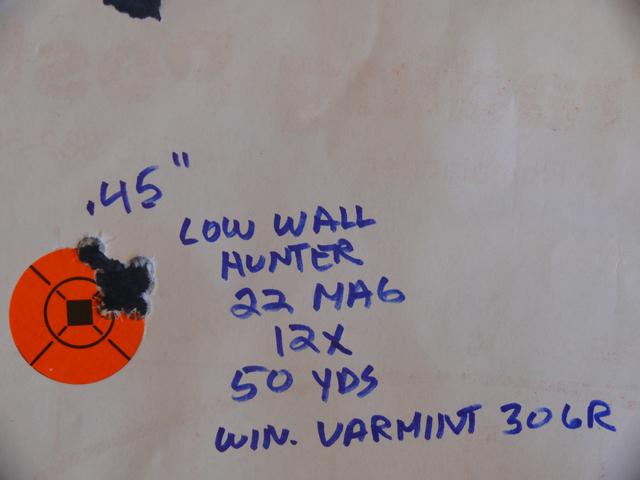 .45"
LOW WALL
HUNTER
22 MAG
12X
50 YDS
WIN. VARMINT 30 GR